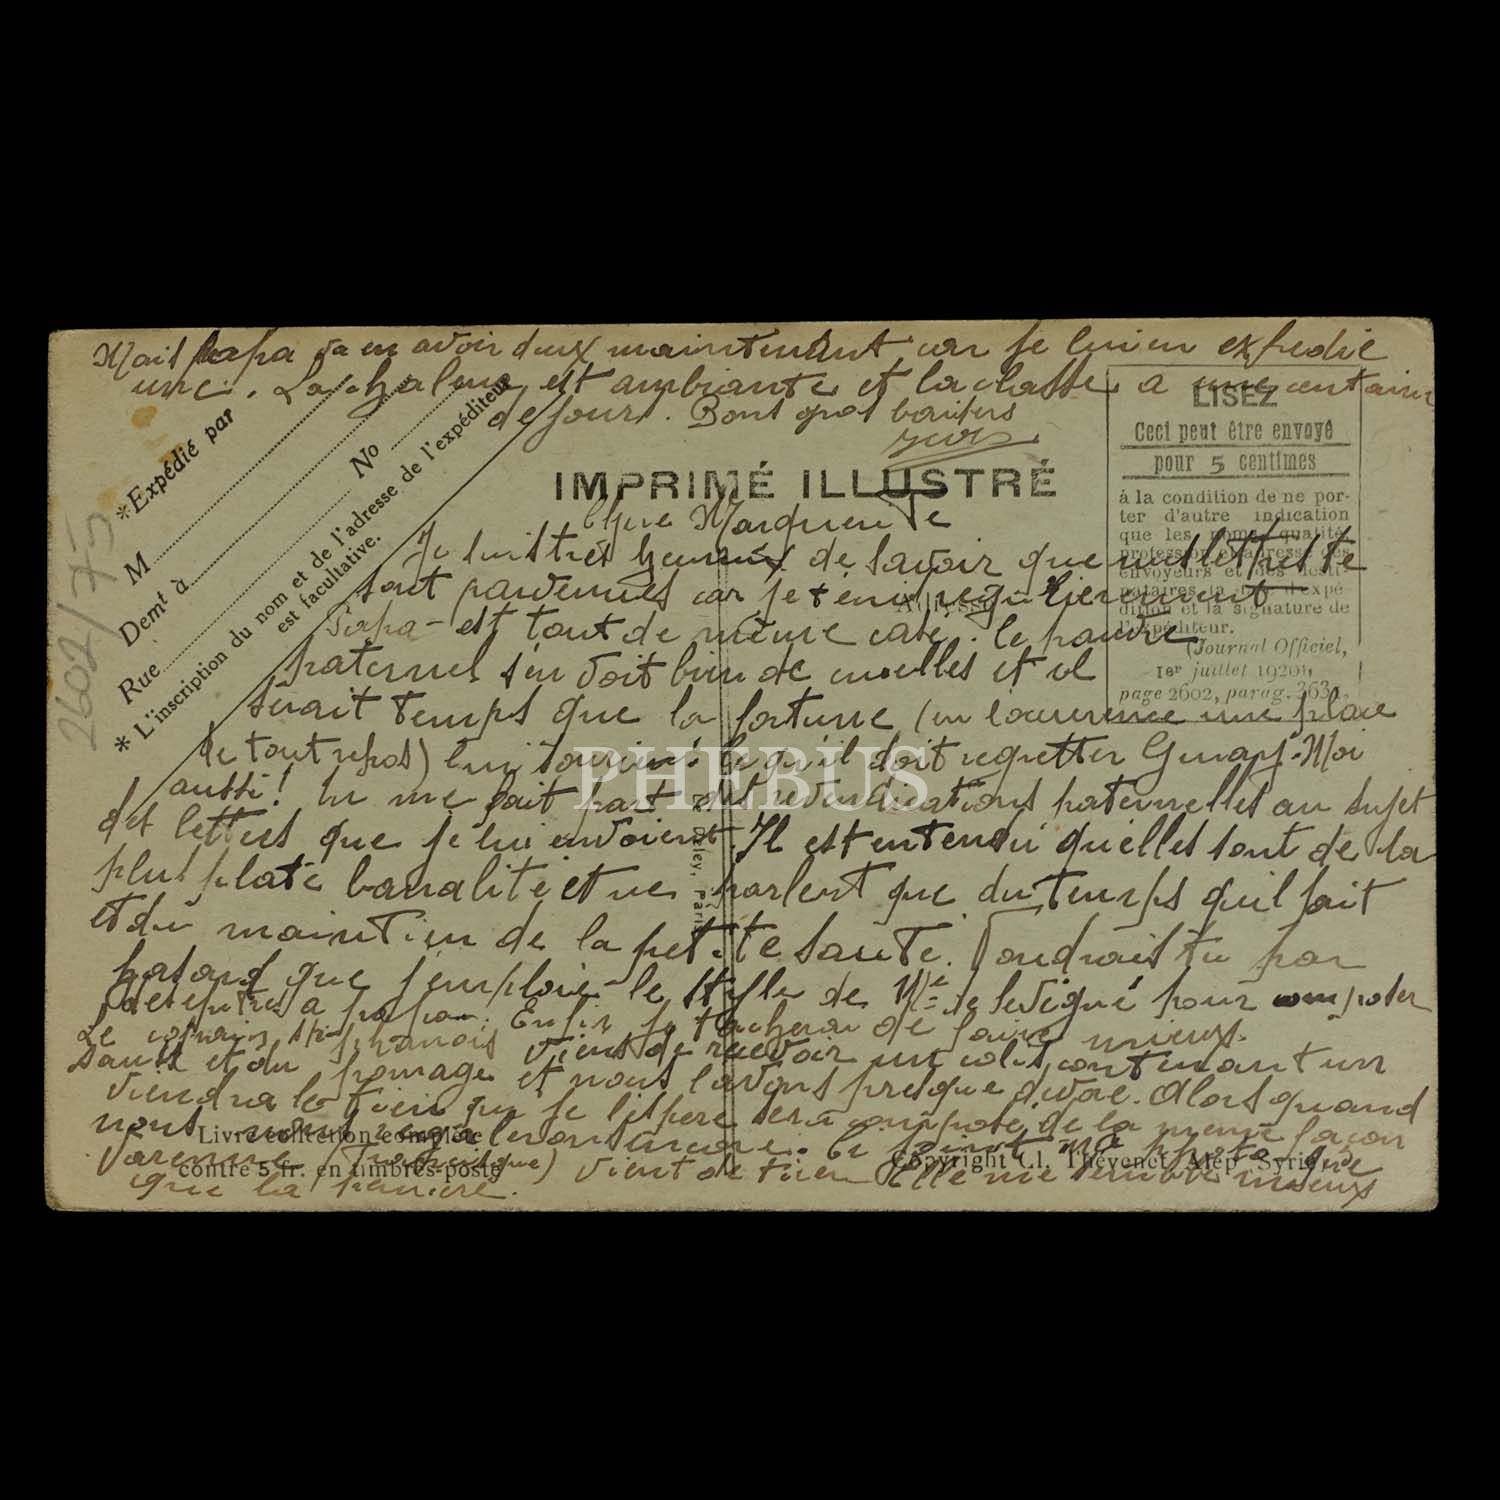 Mais papa va en avoir deux maintenant car je lui en expedie
une. La chaleur est ambiante et la chasse a une centaine
de jours. Bons gros baisers
IMPRIMÉ ILLUSTRÉ
LISEZ
Ceci peut être envoyé
pour 5 centimes
à la condition de ne por-
ter d'autre indication
que les noms, qualité,
profession et adresse des
envoyeurs et des desti-
nataires, la date d'expé-
dition et la signature de
l'expéditeur.
(Journal Officiel,
1er juillet 1920,
page 2602, parag. 363)
*Expédié par
M
Demt à
Rue
No
*L'inscription du nom et de l'adresse de l'expéditeur
est facultative.
2602/75
Adresse
Chère Marguerite
Je suis très heureux de savoir que mes lettres te
sont parvenues car je tenais regulièrement
Papa est tout de même casé. Le pauvre
paternel s'en voit bien de cruelles et il
serait temps que la fortune (en l'occurence une place
de tout repos) lui sourie. Ce qu'il doit regretter Moi
aussi! Tu me fait part des revendications paternelles au sujet
des lettres que je lui envoient. Il est entendu quelles sont de la
plus plate banalité et ne parlent que du temps qu'il fait
et du maintien de la petite santé. Voudrais tu par
hasard que j'emploie le style de Me de Sevigné pour composer
des epitres a papa. Enfin je tacherai de faire mieux.
Le copain viens de recevoir un colis contenant un
sauss et du fromage et nous l'avons presque divoré. Alors quand
viendra le tien qui je l'espere sera composé de la meme façon
nous nous regalerons encore. Ce photo que
Varenne vient de tirer Elle me semble mieux
que la premiere.
PHEBUS
Deley, Paris
Livre collection complète
contre 5 fr. en timbres-poste
Copyright Cl. Thévenet, Alep Syrie